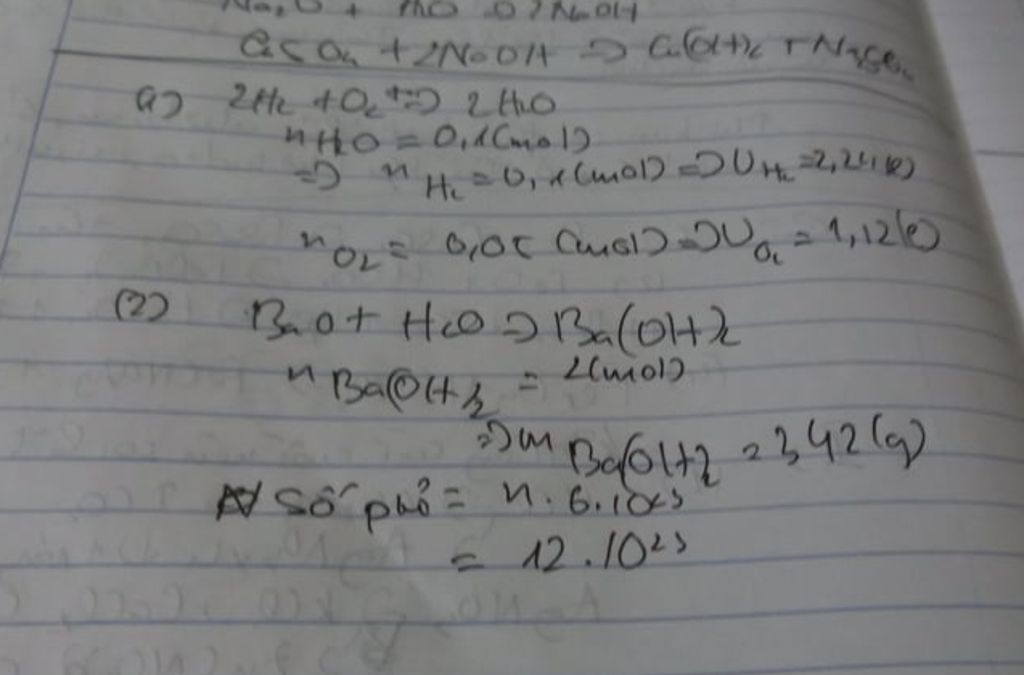 Na2O + H2O => 2NaOH
CuSO4 + 2NaOH => Cu(OH)2 + Na2SO4
a) 2H2 + O2 => 2H2O
nH2O = 0,1(mol)
=> nH2 = 0,1(mol) => VH2 = 2,24(l)
nO2 = 0,05 (mol) => VO2 = 1,12(l)
(2) BaO + H2O => Ba(OH)2
nBa(OH)2 = 2(mol)
=> mBa(OH)2 = 342(g)
số phtử = n.6.10²³
= 12.10²³